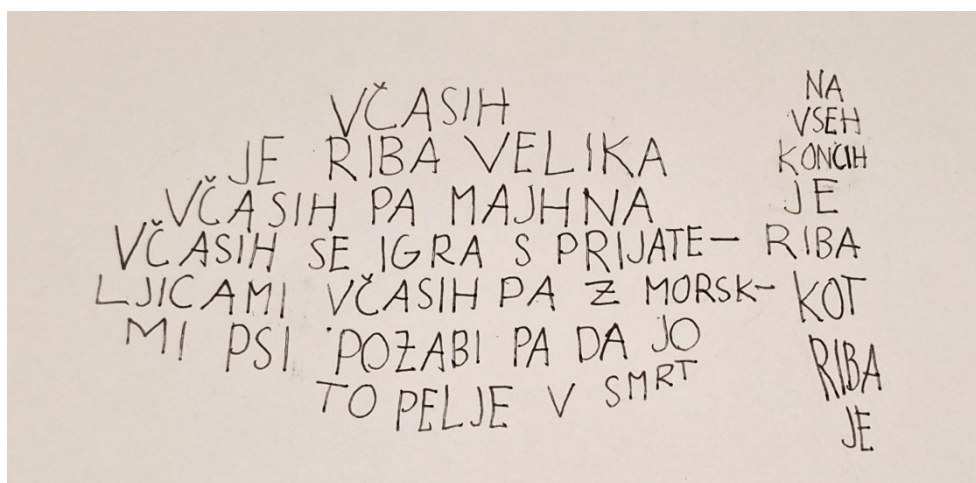 VČASIH
JE RIBA VELIKA
VČASIH PA MAJHNA
VČASIH SE IGRA S PRIJATE-
LJICAMI VČASIH PA Z MORSK-
MI PSI POZABI PA DA JO
TO PELJE V SMRT
NA
VSEH
KONCIH
JE
RIBA
KOT
RIBA
JE